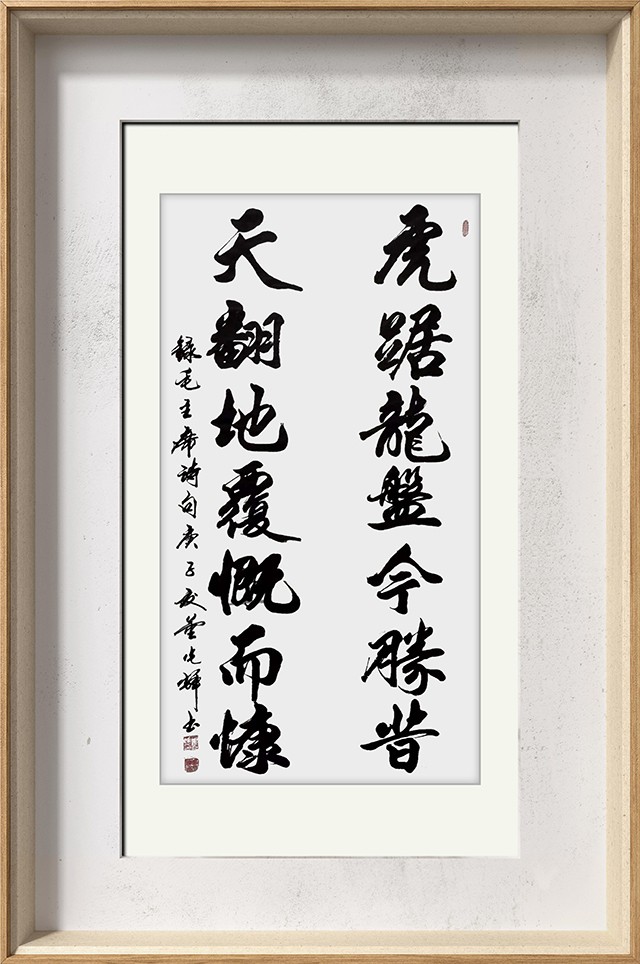 虎踞龍盤今勝昔
天翻地覆慨而慷
録毛主席詩句庚子夏董光輝書